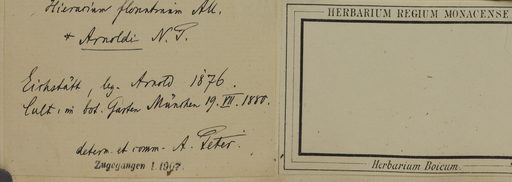 Hieracium florentinum All.
* Arnoldi N. P.
Eichstätt, leg. Arnold 1876.
Cult. im bot. Garten München 19. VII. 1880.
determ. et comm. A. Peter.
Zugegangen 1.1907.
HERBARIUM REGIUM MONACENSE
Herbarium Boicum.